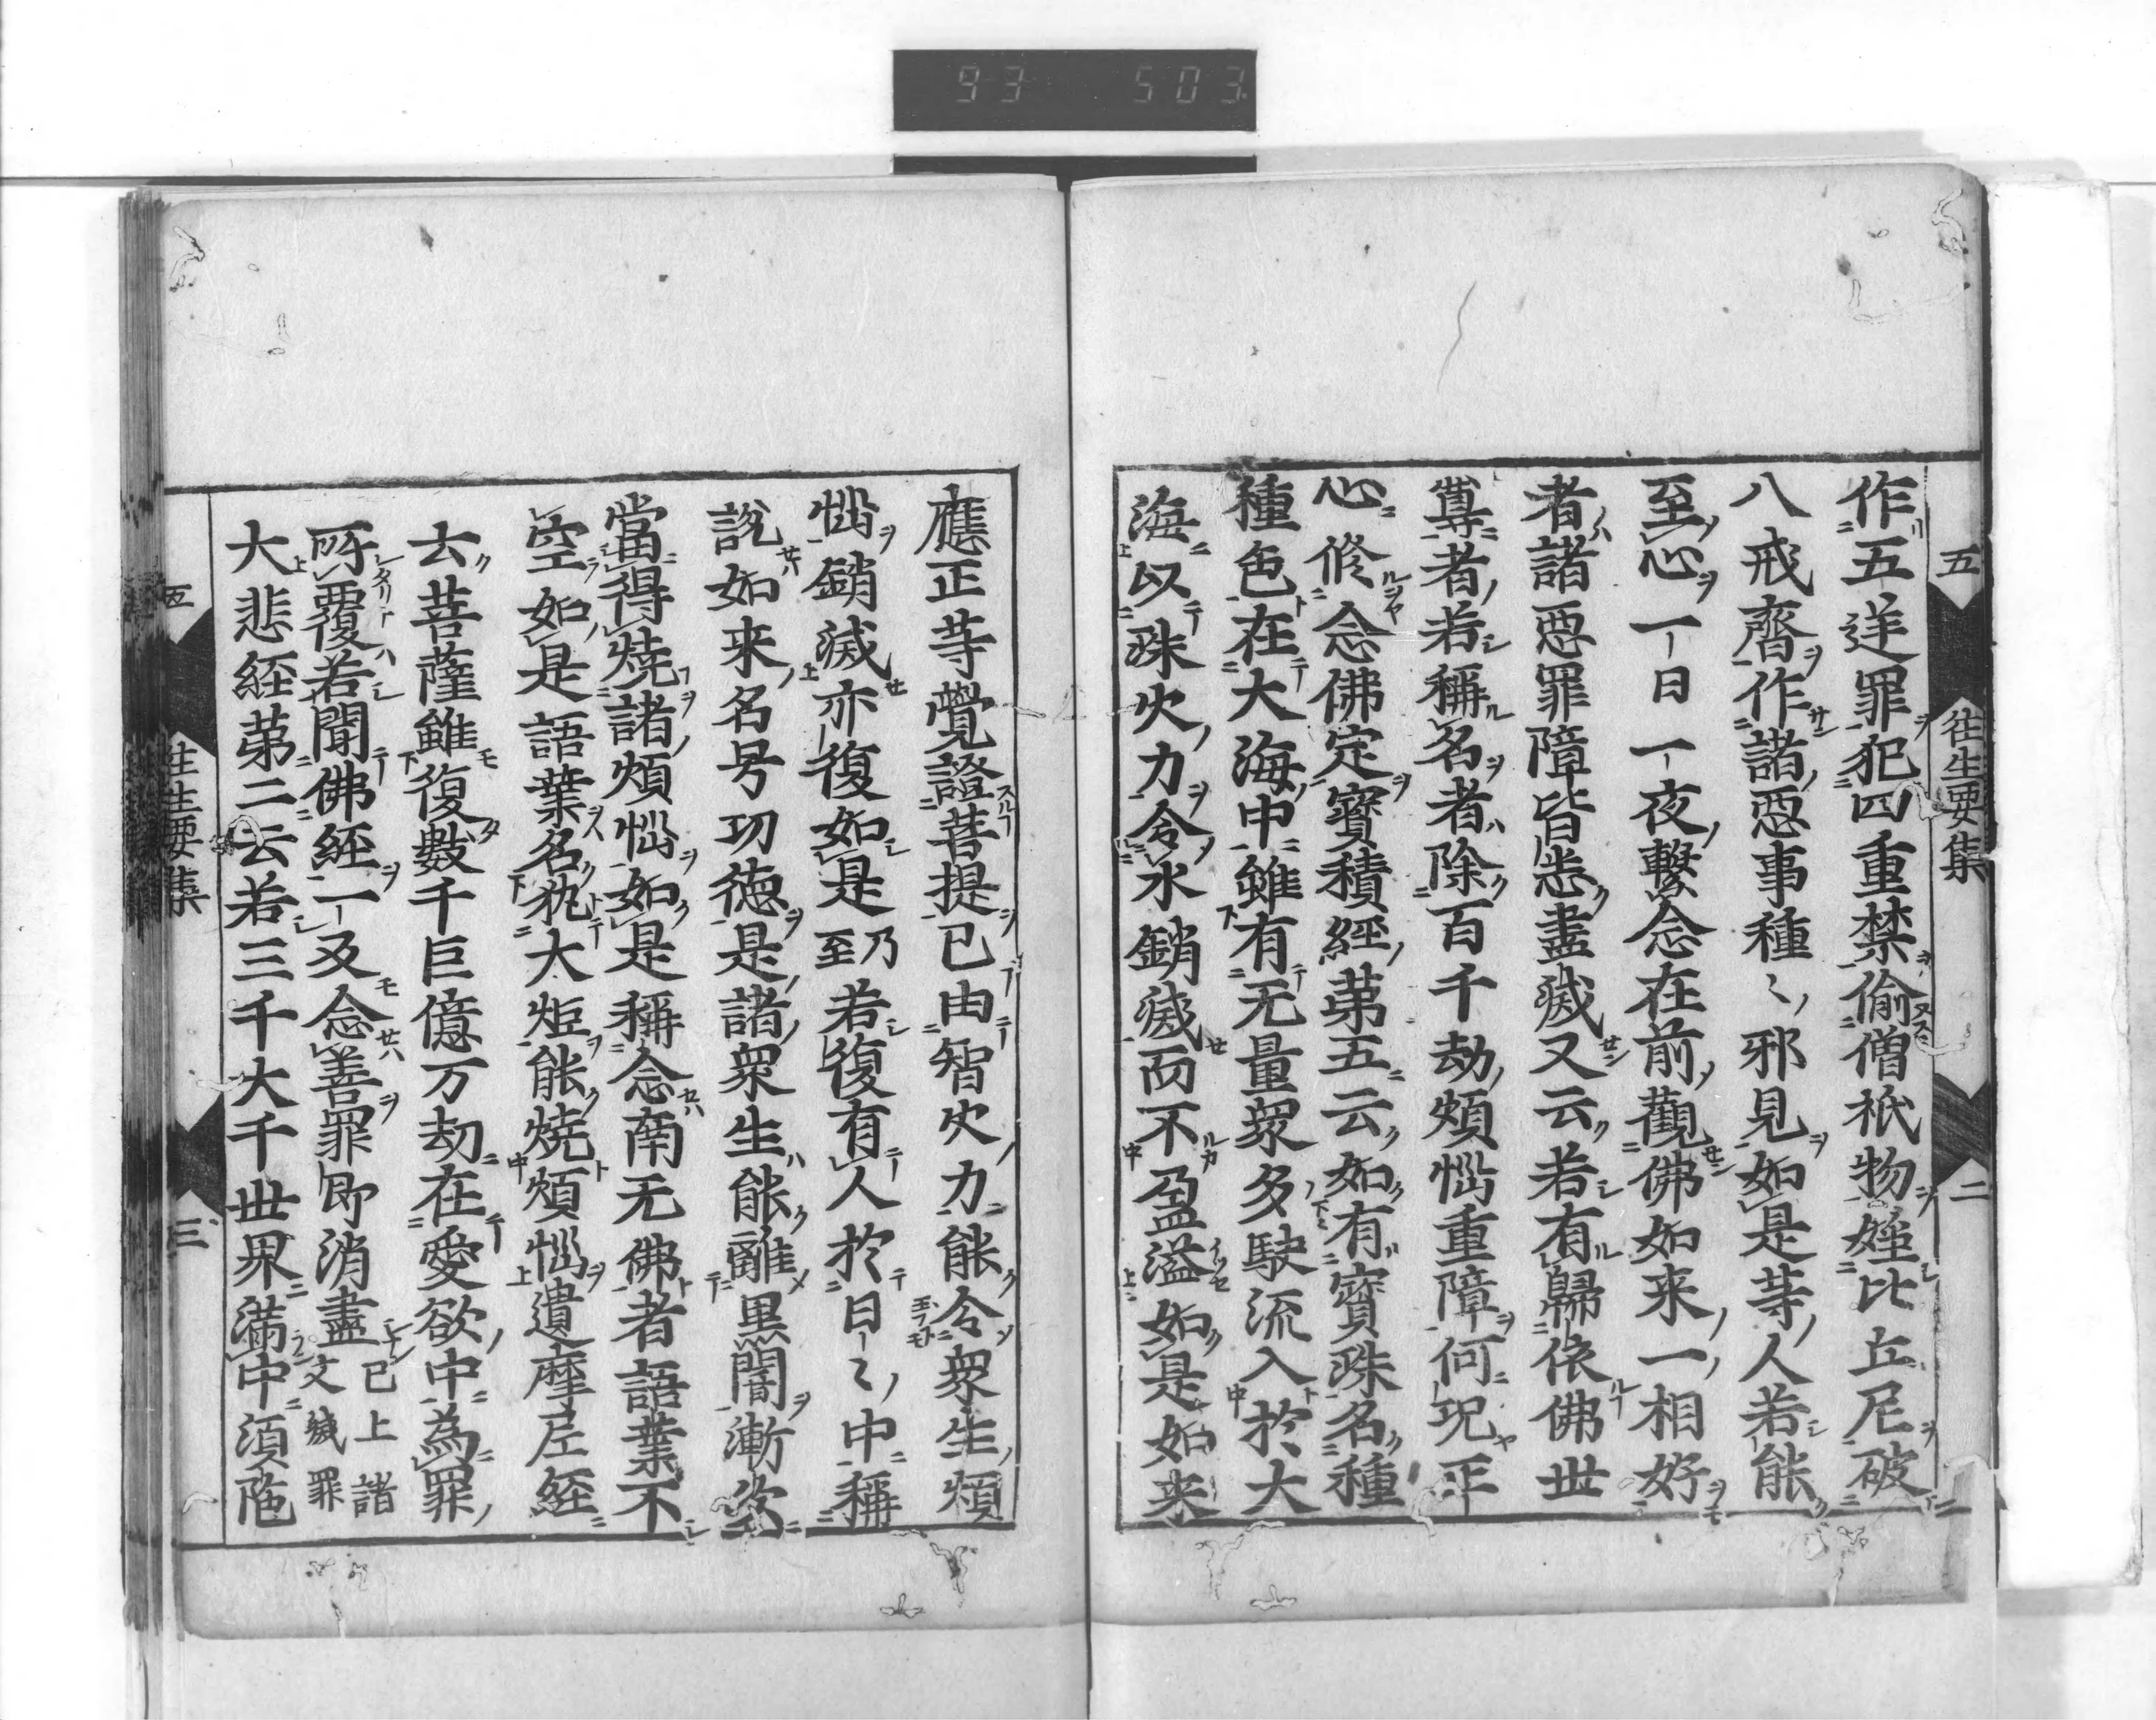 93 503
五 往生要集 二
作五逆罪犯四重禁偷僧祇物婬比丘尼破
八戒齋作諸惡事種〻邪見如是等人若能
至心一日一夜繫念在前觀佛如来一相好
者諸惡罪障皆悉盡滅又云若有歸依佛世
尊者若稱名者除百千劫煩惱重障何況正
心修念佛定寶積經第五云如有寶珠名種
種色在大海中雖有无量眾多駛流入於大
海以珠火力令水銷滅而不盈溢如是如来
應正等覺證菩提已由智火力能令眾生煩
惱銷滅亦復如是乃至若復有人於日〻中稱
說如来名号功德是諸眾生能離黒闇漸次
當得燒諸煩惱如是稱念南无佛者語業不
空如是語業名執大炬能燒煩惱遺摩尼經
云菩薩雖復數千巨億万劫在愛欲中為罪
所覆若聞佛經一反念善罪即消盡已上諸文滅罪
大悲經第二云若三千大千世界滿中須陁
五 往生要集 三